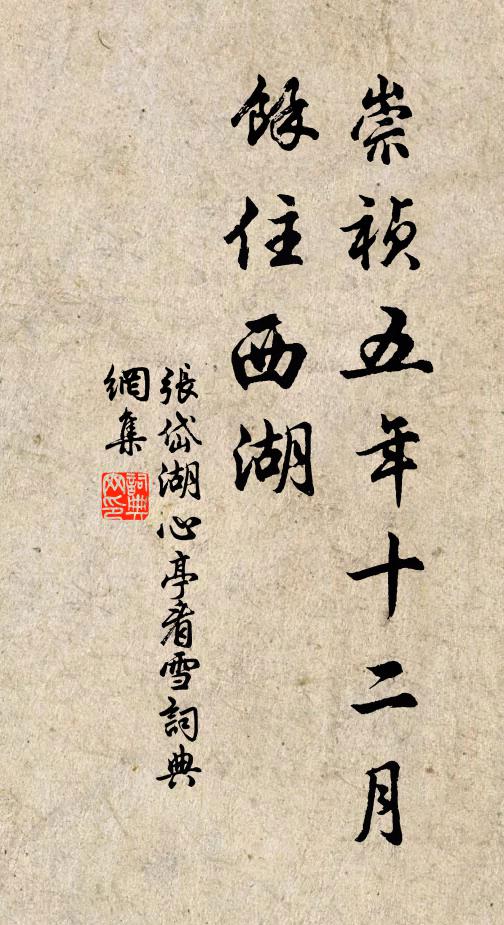 崇禎五年十二月
餘住西湖
張岱湖心亭看雪詞典
網集
詞典
網印